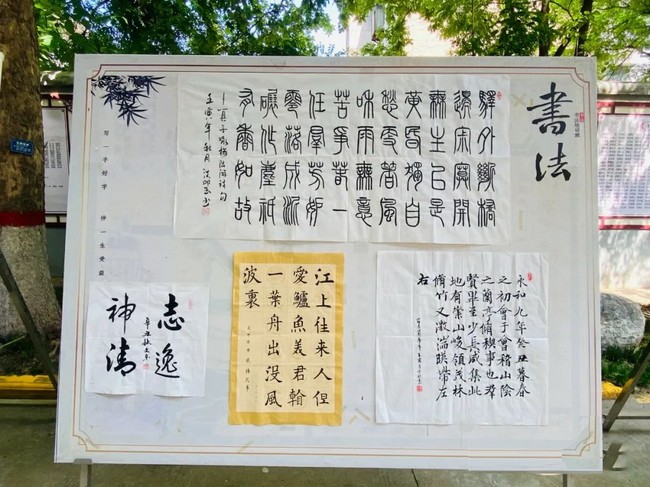 書法
驛外斷橋
邊寂寞開
無主已是
黃昏獨自
愁更著風
和雨無意
苦爭春一
任群芳妒
零落成泥
碾作塵祇
有香如故
壬寅年秋月
写一手好字 伴一生受益
永和九年癸丑暮春
之初會于會稽山陰
之蘭亭脩禊事也羣
賢畢至少長咸集此
地有崇山峻領茂林
脩竹又激湍暎帶左
右
江上往来人但
愛鱸魚美君翰
一葉舟出没風
波裏
志逸
神清